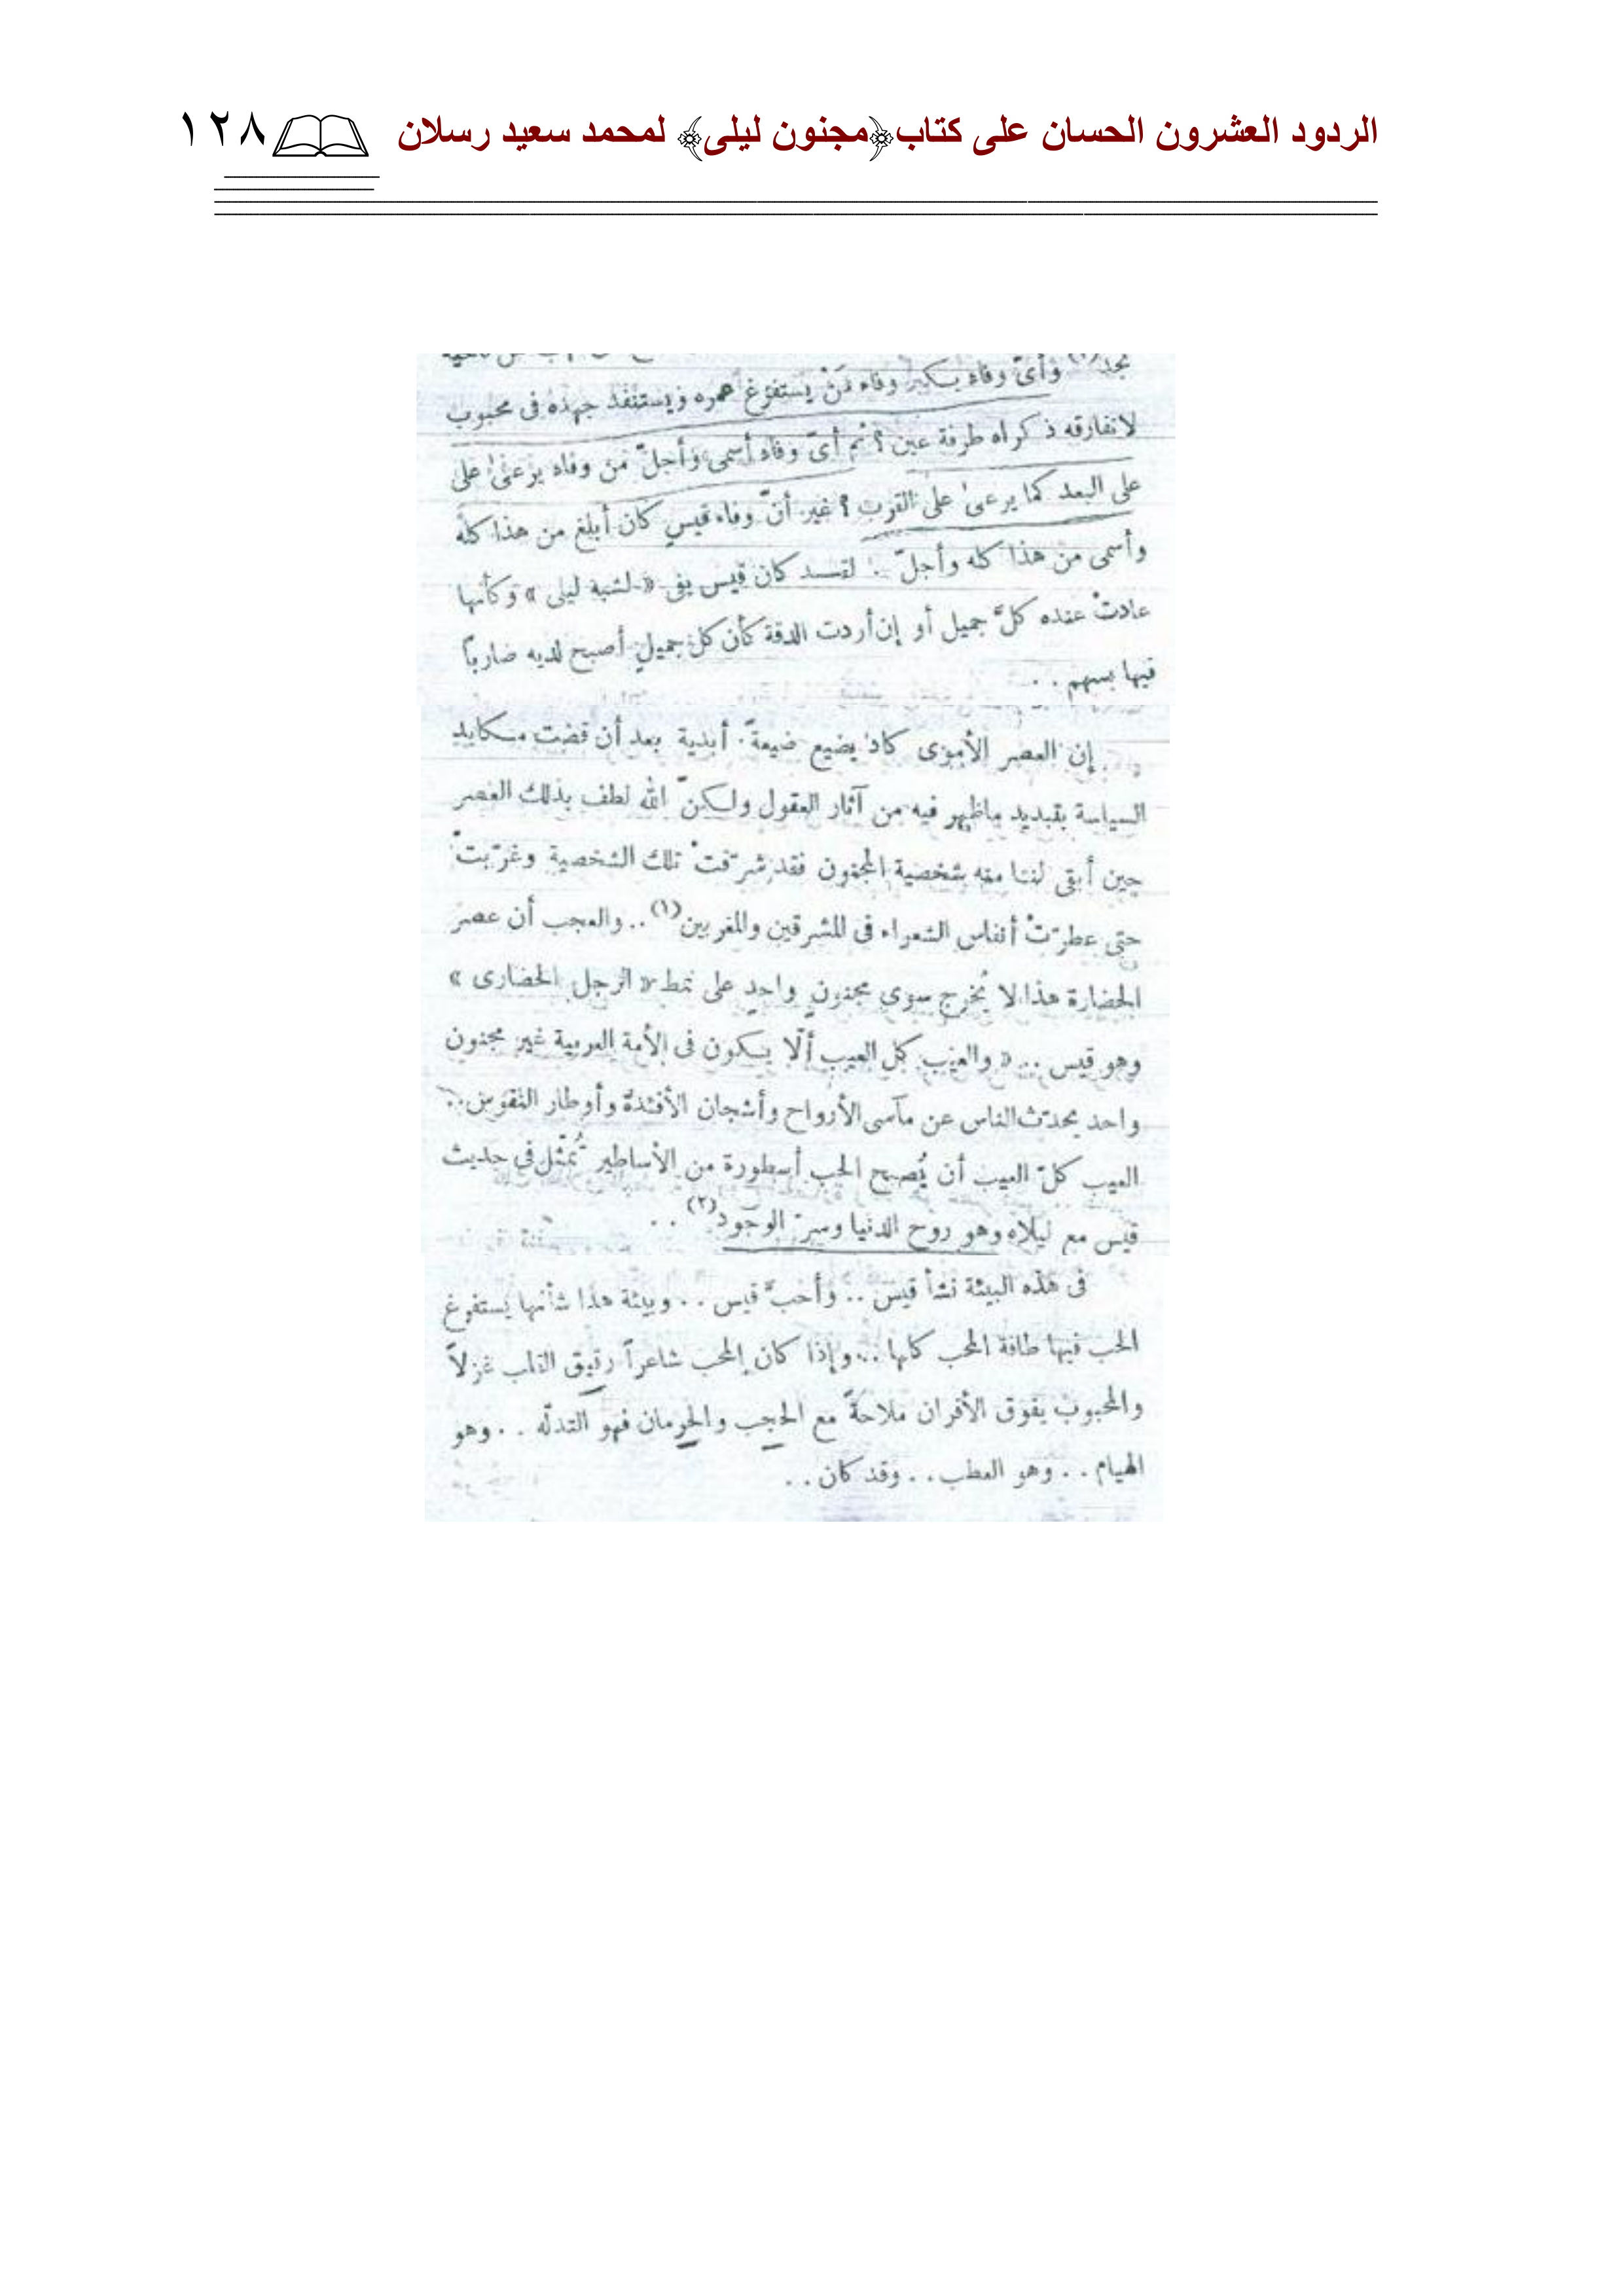 الردود العشرون الحسان على كتاب﴿مجنون ليلى﴾ لمحمد سعيد رسلان ١٢٨
نجد وأىّ وفاء يكبر وفاء مَنْ يستفرغ عمره ويستنفذ جهده فى محبوب
لاتفارقه ذكراه طرفة عين ؟ ثم أىّ وفاء أسمى وأجلّ من وفاء يرعىٰ على
على البعد كما يرعىٰ على القرب ؟ غير أنّ وفاء قيس كان أبلغ من هذا كله
وأسمى من هذا كله وأجلّ .. لقد كان قيس يفى « لشبه ليلى » وكأنها
عادتْ عنده كلَّ جميل أو إن أردت الدقة كأن كل جميل أصبح لديه ضارباً
فيها بسهم . .
إن العصر الأموى كاد يضيع ضيعةً أبدية بعد أن قضت مكايد
السياسة بتبديد ماظهر فيه من آثار العقول ولكنّ الله لطف بذلك العصر
حين أبقى لنا منه شخصية المجنون فقد شرّقتْ تلك الشخصية وغرّبتْ
حتى عطرّتْ أنفاس الشعراء فى المشرقين والمغربين(١) .. والعجب أن عصر
الحضارة هذا لا يُخرج سوى مجنونٍ واحدٍ على نمط « الرجل الحضارى »
وهو قيس .. « والعيب كل العيب ألّا يكون فى الأمة العربية غير مجنون
واحد يحدّث الناس عن مآسى الأرواح وأشجان الأفئدة وأوطار النفوس ..
العيب كلّ العيب أن يُصبح الحب أسطورة من الأساطير تُمثّل فى حديث
قيس مع ليلاه وهو روح الدنيا وسرّ الوجود(٢) . .
فى هذه البيئة نشأ قيس .. وأحبَّ قيس . . وبيئة هذا شأنها يستفرغ
الحب فيها طاقة المحب كلها .. وإذا كان المحب شاعراً رقيق القلب غزلاً
والمحبوب يفوق الأقران ملاحةً مع الحجب والحرمان فهو التدلّه . . وهو
الهيام . . وهو العطب . . وقد كان . .